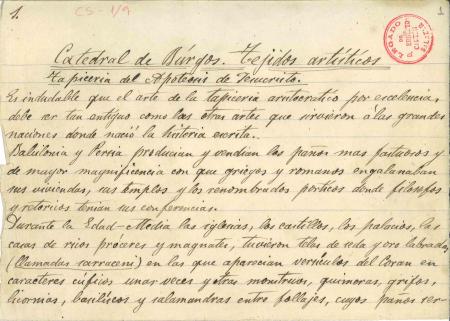 1.
CS-1/9
1
LEGADO
Catedral de Búrgos. Tejidos artísticos
Tapiceria del Apoteosis de
Es indudable que el arte de la tapiceria aristocratico por escelencia,
debe ser tan antiguo como las otras artes que sirvieron á las grandes
naciones donde nació la historia escrita.
Babilonia y Persia producian y vendian los paños mas fastuosos y
de mayor magnificencia con que griegos y romanos engalanaban
sus viviendas, sus templos y los renombrados porticos donde filosofos
y retoricos tenian sus conferencias.
Durante la Edad-Media las iglesias, los castillos, los palacios, las
casas de ricos próceres y magnates, tuvieron telas de seda y oro labradas
(llamadas sarraceni) en las que aparecian versiculos del Coran en
caracteres cúficos unas veces y otras monstruos, quimeras, grifos,
licornias, basilicos y salamandras entre follajes, cuyos paños ser-